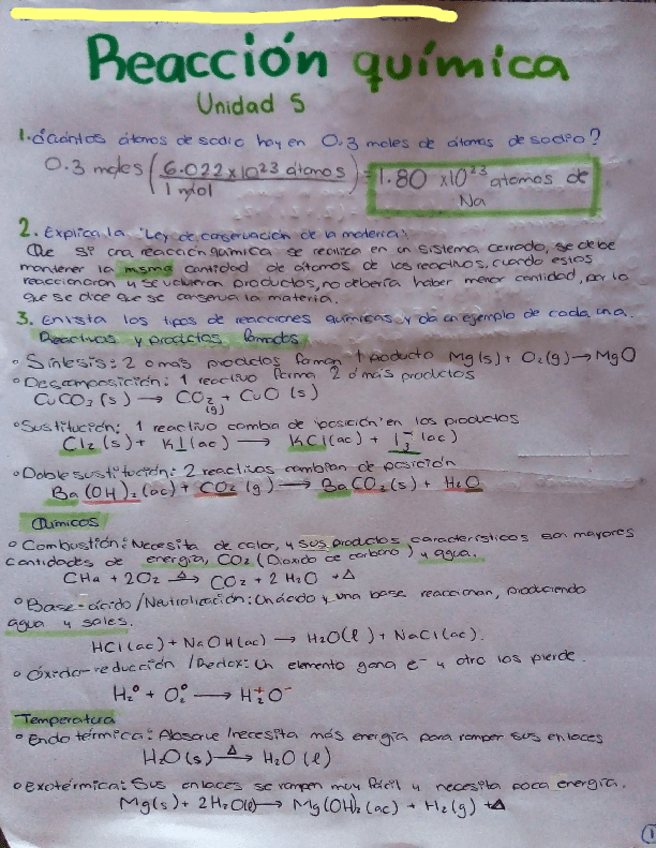 Reacción química
Unidad 5
1. ¿Cuántos átomos de sodio hay en 0.3 moles de átomos de sodio?
0.3 moles (6.022x10²³ átomos / 1 mol) = 1.80 x10²³ atomos de Na
2. Explica la "Ley de conservación de la materia".
Que si una reacción química se realiza en un sistema cerrado, se debe
mantener la misma cantidad de átomos de los reactivos, cuando estos
reaccionaron y se volvieron productos, no debería haber menor cantidad, por lo
que se dice que se conserva la materia.
3. Enlista los tipos de reacciones químicas y da un ejemplo de cada una.
Reactivos y productos formados
° Síntesis: 2 o mas productos forman 1 producto Mg(s) + O₂(g) → MgO
° Descomposición: 1 reactivo forma 2 ó más productos
CuCO₃(s) → CO₂(g) + CuO(s)
° Sustitución: 1 reactivo cambia de "posición" en los productos
Cl₂(s) + KI(ac) → KCl(ac) + I₃⁻(ac)
° Doble sustitución: 2 reactivos cambian de posición
Ba(OH)₂(ac) + CO₂(g) → BaCO₃(s) + H₂O
Químicos
° Combustión: Necesita de calor, y sus productos característicos son mayores
cantidades de energía, CO₂ (Dioxido de carbono) y agua.
CH₄ + 2O₂ →Δ CO₂ + 2H₂O + Δ
° Base-ácido/Neutralización: Un ácido y una base reaccionan, produciendo
agua y sales.
HCl(ac) + NaOH(ac) → H₂O(l) + NaCl(ac).
° Óxido-reducción/Redox: Un elemento gana e⁻ y otro los pierde.
H₂⁰ + O₂⁰ → H₂⁺O⁻
Temperatura
° Endotérmica: Absorve/necesita más energía para romper sus enlaces
H₂O(s) →Δ H₂O(l)
° Exotérmica: Sus enlaces se rompen muy fácil y necesita poca energía.
Mg(s) + 2H₂O(l) → Mg(OH)₂(ac) + H₂(g) + Δ
1